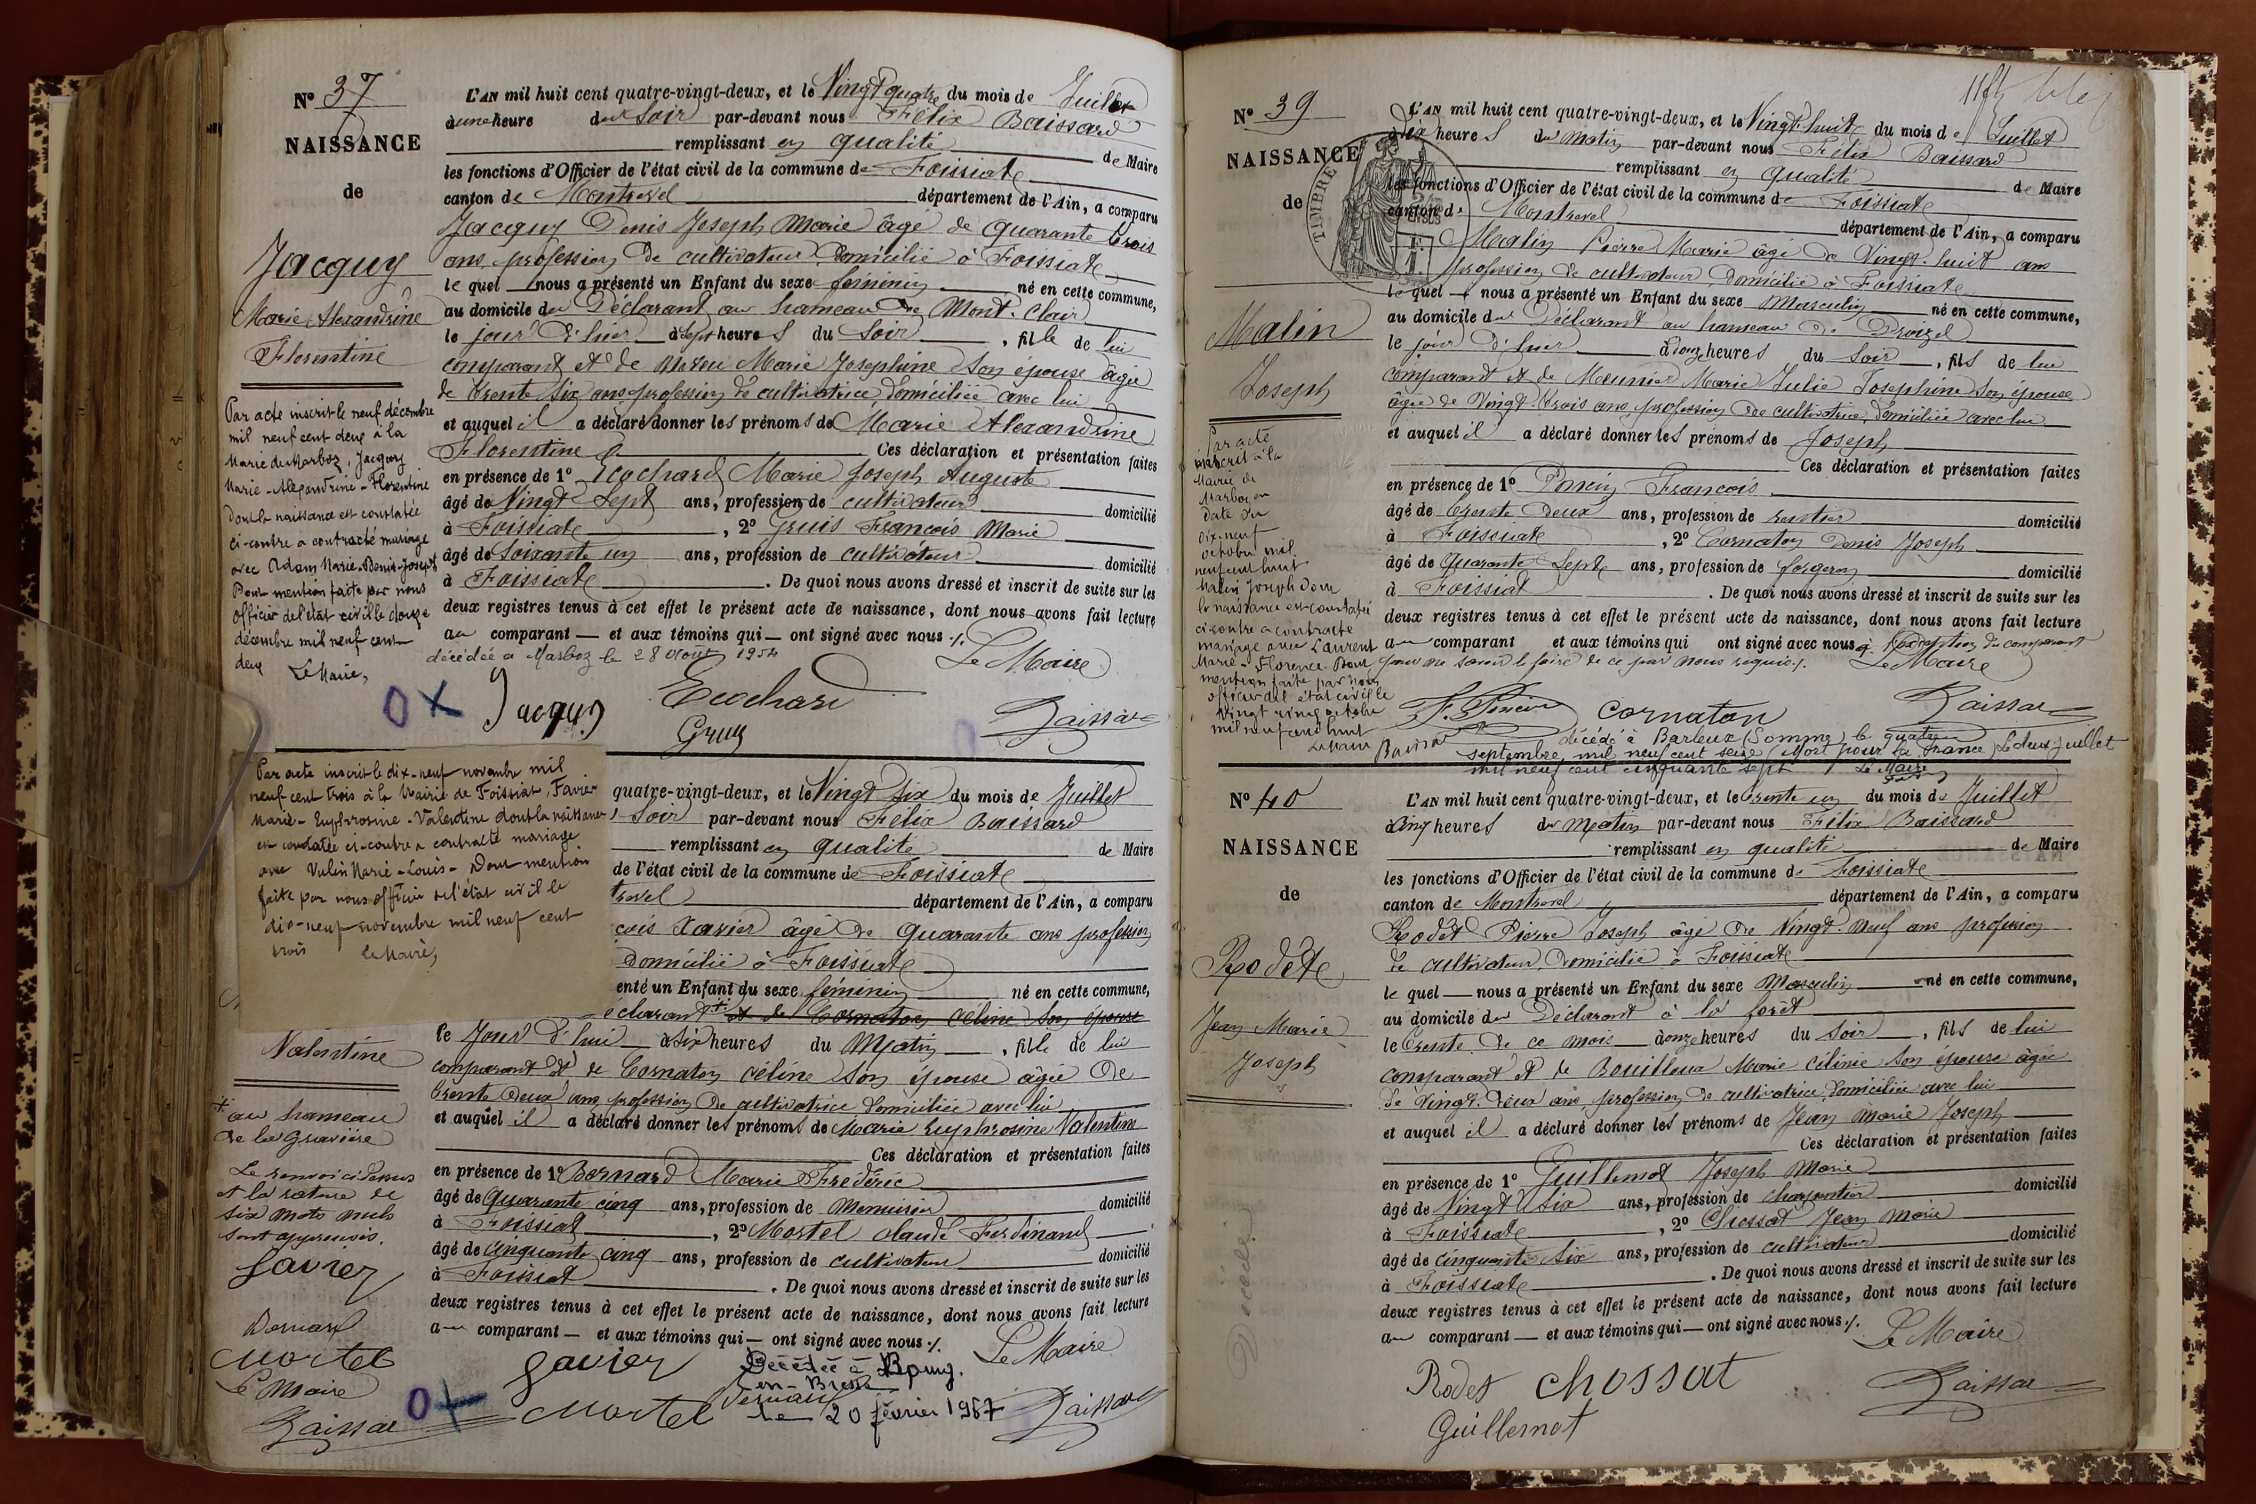 N° 37
NAISSANCE
de
Jacquy
Marie Alexandrine
Florentine
Par acte inscrit le neuf décembre
mil neuf cent deux à la
Mairie de Marboz, Jacquy
Marie-Alexandrine-Florentine
dont la naissance est constatée
ci-contre a contracté mariage
avec Adam Marie-Denis-Joseph
Dont mention faite par nous
officier de l'état civil le douze
décembre mil neuf cent
deux Le Maire,
L'AN mil huit cent quatre-vingt-deux, et le Vingt quatre du mois de Juillet
à une heure du Soir par-devant nous Félix Baissard
remplissant en qualité de Maire
les fonctions d'Officier de l'état civil de la commune de Foissiat
canton de Montrevel département de l'Ain, a comparu
Jacquy Denis Joseph Marie âgé de quarante trois
ans profession de cultivateur domicilié à Foissiat
le quel nous a présenté un Enfant du sexe féminin né en cette commune,
au domicile du Déclarant au hameau de Mont-Clair
le jour d'hier à Sept heures du Soir, fille de lui
comparant et de Marie Josephine Son épouse âgée
de trente Six ans profession de cultivatrice domiciliée avec lui
et auquel il a déclaré donner les prénoms de Marie Alexandrine
Florentine Ces déclaration et présentation faites
en présence de 1° Ecochard Marie Joseph Auguste
âgé de Vingt Sept ans, profession de cultivateur domicilié
à Foissiat, 2° Gruis François Marie
âgé de Soixante un ans, profession de cultivateur domicilié
à Foissiat. De quoi nous avons dressé et inscrit de suite sur les
deux registres tenus à cet effet le présent acte de naissance, dont nous avons fait lecture
au comparant et aux témoins qui ont signé avec nous ./.
décédée à Marboz le 28 août 1954
Le Maire
OX Jacquy Ecochard
Baissard
Par acte inscrit le dix-neuf novembre mil
neuf cent trois à la Mairie de Foissiat, Favier
Marie-Euphrosine-Valentine dont la naissance
est constatée ci-contre a contracté mariage
avec Vulin Marie-Louis- Dont mention
faite par nous officier de l'état civil le
dix-neuf novembre mil neuf cent
trois Le Maire,
Valentine
+ au hameau
de la Gravière
Le renvoi ci dessus
et la rature de
six mots nuls
sont approuvés.
Favier
Bernard
Mortel
Le Maire
Baissard
quatre-vingt-deux, et le Vingt Six du mois de Juillet
Soir par-devant nous Félix Baissard
remplissant en qualité de Maire
de l'état civil de la commune de Foissiat
trevel département de l'Ain, a comparu
çois Xavier âgé de quarante ans profession
domicilié à Foissiat
enté un Enfant du sexe féminin né en cette commune,
éclarant + et de Cornaton Céline Son épouse
le Jour d'hui à Six heures du Matin, fille de lui
comparant et de Cornaton Céline Son épouse âgée de
trente deux ans profession de cultivatrice domiciliée avec lui
et auquel il a déclaré donner les prénoms de Marie Euphrosine Valentine
Ces déclaration et présentation faites
en présence de 1° Bernard Marie Frédéric
âgé de Quarante cinq ans, profession de Menuisier domicilié
à Foissiat, 2° Mortel Claude Ferdinand
âgé de Cinquante cinq ans, profession de cultivateur domicilié
à Foissiat. De quoi nous avons dressé et inscrit de suite sur les
deux registres tenus à cet effet le présent acte de naissance, dont nous avons fait lecture
au comparant et aux témoins qui ont signé avec nous ./.
Le Maire
Favier Décédée à Bourg-
en-Bresse
OX Mortel Bernard le 20 février 1967 Baissard
N° 39
NAISSANCE
de
TIMBRE
Malin
Joseph
Par acte
inscrit à la
Mairie de
Marboz en
date du
dix-neuf
octobre mil
neuf cent huit
Malin Joseph dont
la naissance est constatée
ci-contre a contracté
mariage avec Laurent
Marie-Florence. Dont
mention faite par nous
officier de l'état civil le
vingt cinq octobre
mil neuf cent huit
Le Maire Baissard
L'AN mil huit cent quatre-vingt-deux, et le Vingt-huit du mois de Juillet
à dix heures du matin par-devant nous Félix Baissard
remplissant en qualité de Maire
les fonctions d'Officier de l'état civil de la commune de Foissiat
canton de Montrevel département de l'Ain, a comparu
Malin Pierre Marie âgé de Vingt-huit ans
profession de cultivateur domicilié à Foissiat
le quel nous a présenté un Enfant du sexe Masculin né en cette commune,
au domicile du Déclarant au hameau de
le jour d'hier à onze heures du Soir, fils de lui
comparant et de Meunier Marie Julie Josephine Son épouse
âgée de Vingt-trois ans profession de cultivatrice domiciliée avec lui
et auquel il a déclaré donner les prénoms de Joseph
Ces déclaration et présentation faites
en présence de 1° Poncin François
âgé de trente deux ans, profession de rentier domicilié
à Foissiat, 2° Cornaton Denis Joseph
âgé de Quarante Sept ans, profession de forgeron domicilié
à Foissiat. De quoi nous avons dressé et inscrit de suite sur les
deux registres tenus à cet effet le présent acte de naissance, dont nous avons fait lecture
au comparant et aux témoins qui ont signé avec nous à l'exception du comparant
pour ne savoir le faire de ce par nous requis ./. Le Maire
F. Poncin Cornaton Baissard
décédé à Barleux (Somme) le quatre
septembre mil neuf cent seize (Mort pour la France) Le deux juillet
mil neuf cent cinquante sept Le Maire
N° 40
NAISSANCE
de
Rodet
Jean Marie
Joseph
Décédé
L'AN mil huit cent quatre-vingt-deux, et le trente un du mois de Juillet
à Cinq heures du Matin par-devant nous Félix Baissard
remplissant en qualité de Maire
les fonctions d'Officier de l'état civil de la commune de Foissiat
canton de Montrevel département de l'Ain, a comparu
Rodet Pierre Joseph âgé de Vingt-Neuf ans profession
de cultivateur domicilié à Foissiat
le quel nous a présenté un Enfant du sexe Masculin né en cette commune,
au domicile du Déclarant à la forêt
le trente de ce mois à onze heures du Soir, fils de lui
comparant et de Bouilloux Marie Célinie Son épouse âgée
de Vingt-deux ans profession de cultivatrice domiciliée avec lui
et auquel il a déclaré donner les prénoms de Jean Marie Joseph
Ces déclaration et présentation faites
en présence de 1° Guillemot Joseph Marie
âgé de Vingt Six ans, profession de charpentier domicilié
à Foissiat, 2° Chossat Jean Marie
âgé de cinquante Six ans, profession de cultivateur domicilié
à Foissiat. De quoi nous avons dressé et inscrit de suite sur les
deux registres tenus à cet effet le présent acte de naissance, dont nous avons fait lecture
au comparant et aux témoins qui ont signé avec nous ./.
Le Maire
Rodet Chossat Baissard
Guillemot